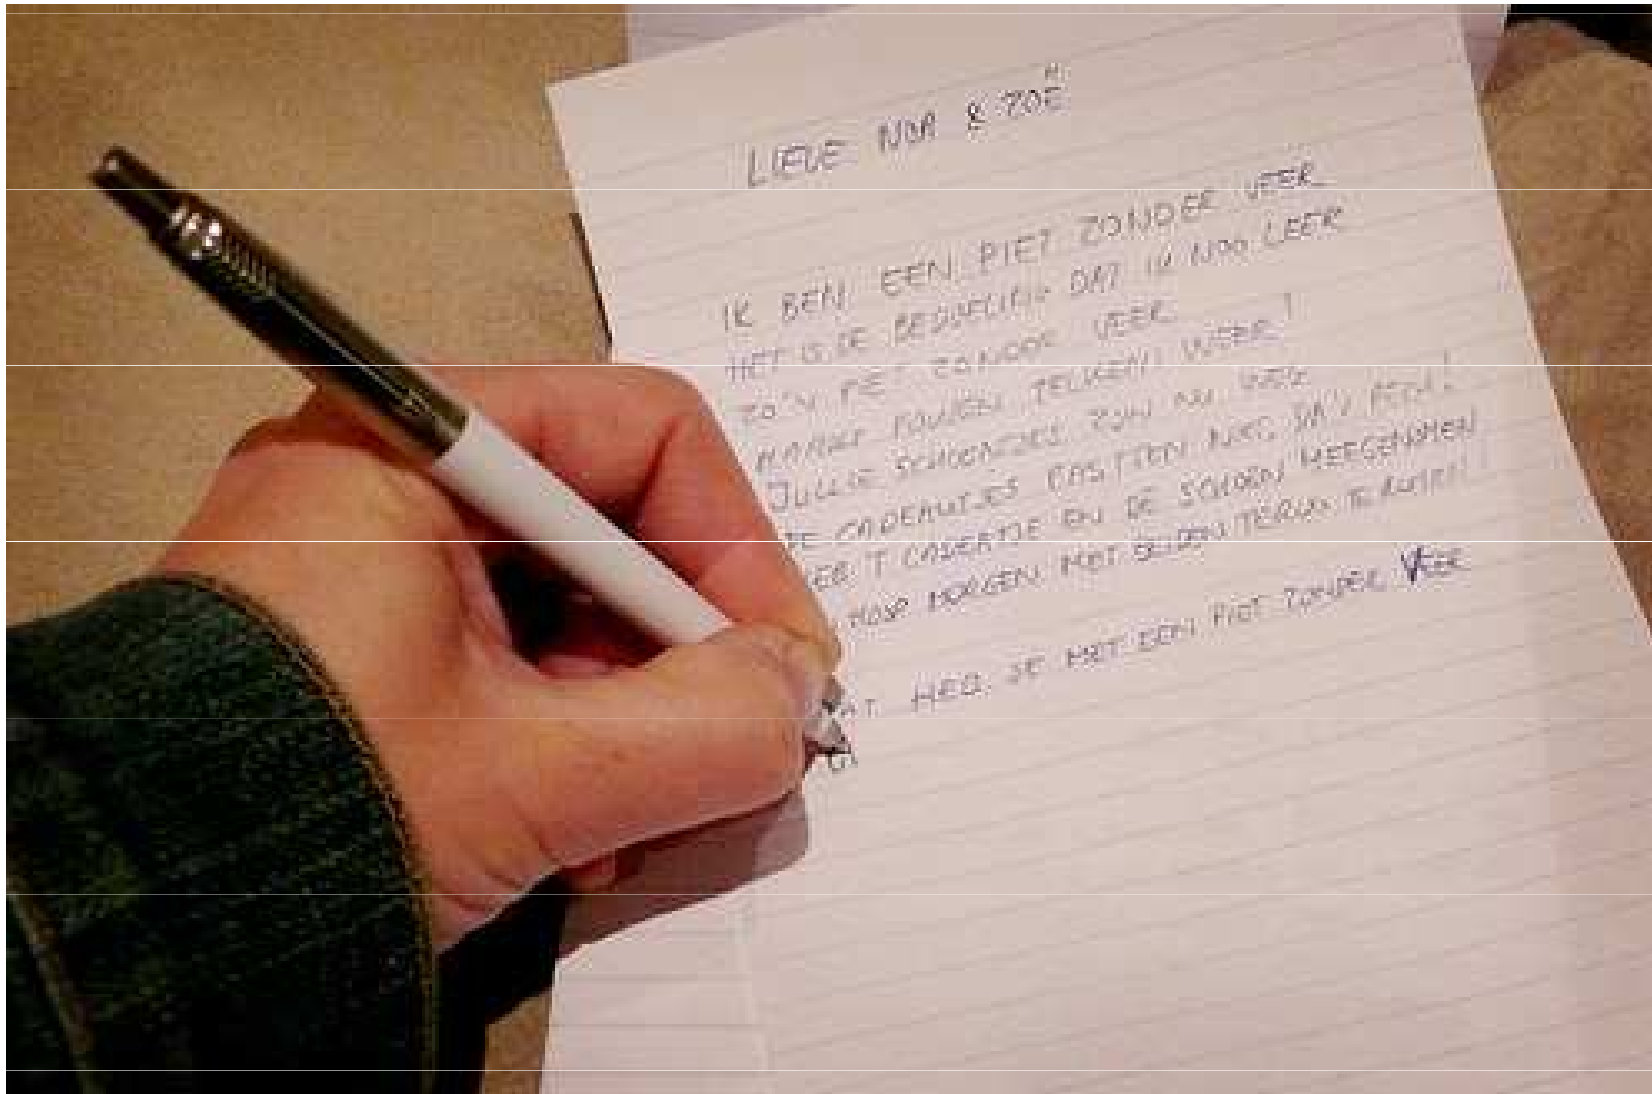 LIEVE NOA & ZOË
IK BEN EEN PIET ZONDER VEER
HET IS DE BEDOELING DAT IK NOG LEER
ZO'N PIET ZONDER VEER
MAAKT FOUTEN TELKENS WEER!
JULLIE SCHOENTJES ZIJN NU WEG
CADEAUTJES PASTEN NIET, DA'S PECH!
'T CADEAUTJE EN DE SCHOEN MEEGENOMEN
MORGEN MET TERUG TE
HEB JE MET EEN PIET ZONDER VEER